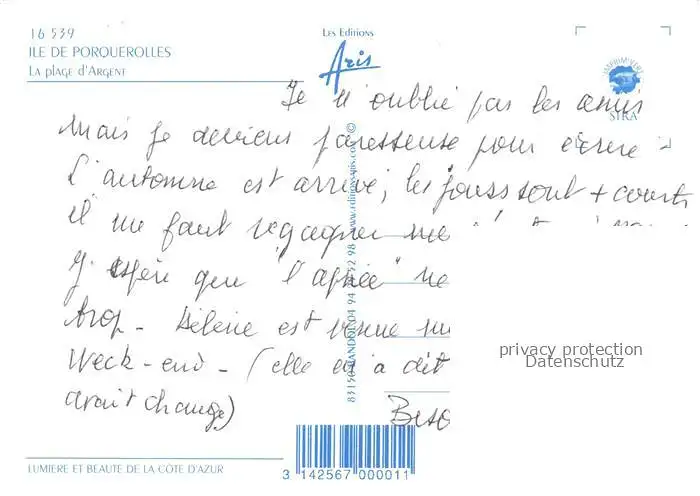 16 539
ILE DE PORQUEROLLES
LA PLAGE D'ARGENT
Les Editions
Aris
IMPRIM'VERT
SIRA
Je n'oublie pas les amis
mais je deviens paresseuse pour écrire -
L'automne est arrivé, les jours sont + courts
il me faut regagner
J'espère que "l'apnée" ne
trop - Hélène est venue
Week-end - (elle m'a dit
avait changé)
83150 BANDOL 04 94 52 98 www.editionsaris.com ©
privacy protection
Datenschutz
LUMIERE ET BEAUTE DE LA CÔTE D'AZUR
3 142567 000011